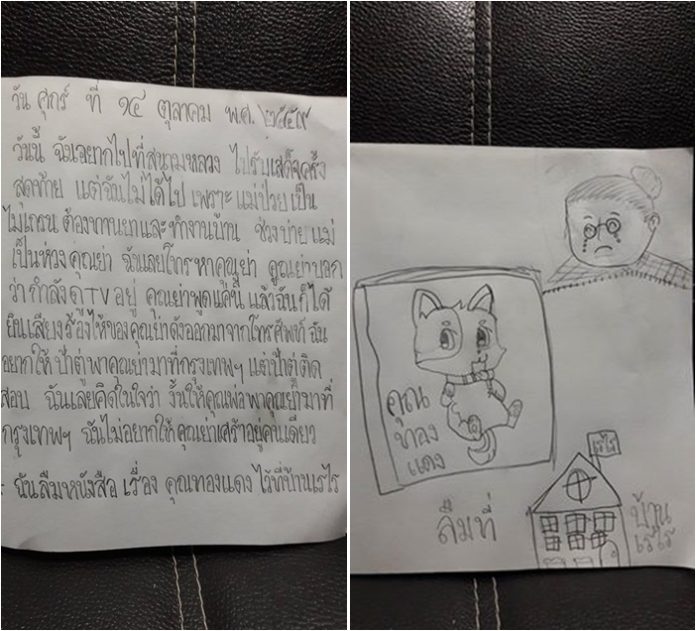 วัน ศุกร์ ที่ ๑๔ ตุลาคม พ.ศ. ๒๕๕๙
วันนี้ ฉันอยากไปที่สนามหลวง ไปรับเสด็จครั้ง
สุดท้าย แต่ฉันไม่ได้ไป เพราะ แม่ป่วย เป็น
ไมเกรน ต้องทานยาและ ทำงานบ้าน ช่วงบ่าย แม่
เป็นห่วง คุณย่า ฉันเลยโทรหาคุณย่า คุณย่าบอก
ว่า กำลังดู TV อยู่ คุณย่าพูดแค่นี้ แล้วฉันก็ได้
ยินเสียงร้องไห้ของคุณย่าดังออกมาจากโทรศัพท์ ฉัน
อยากให้ ป้าตู่พาคุณย่ามาที่กรุงเทพฯ แต่ป้าตู่ติด
สอบ ฉันเลยคิดในใจว่า งั้นให้คุณพ่อพาคุณย่ามาที่
กรุงเทพฯ ฉันไม่อยากให้คุณย่าเศร้าอยู่คนเดียว
- ฉันลืมหนังสือ เรื่อง คุณทองแดง ไว้ที่บ้านเรไร
คุณ
ทอง
แดง
ลืมที่
เรไร
บ้าน
เรไร